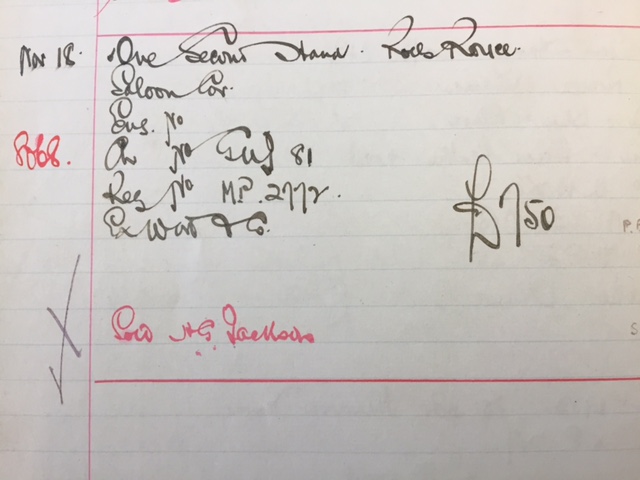 Nov 18. One Second Hand. Rolls Royce.
Saloon Car.
Eng. No
8068. Ch No GUJ 81
Reg No M.P. 2772.
Ex Watt & Co.
£750
P.
Sold H.G. Jackson
S